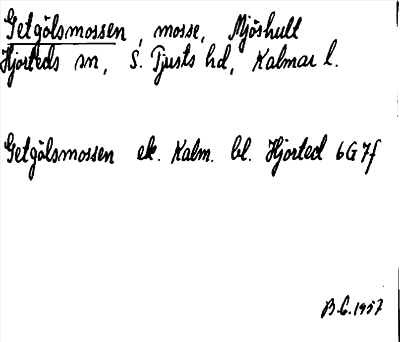 Getgölsmossen, mosse, Mjöshult
Hjorteds sn, S. Tjusts hd, Kalmar l.
Getgölsmossen ek. Kalm. bl. Hjorted 6G7f
B.C. 1957